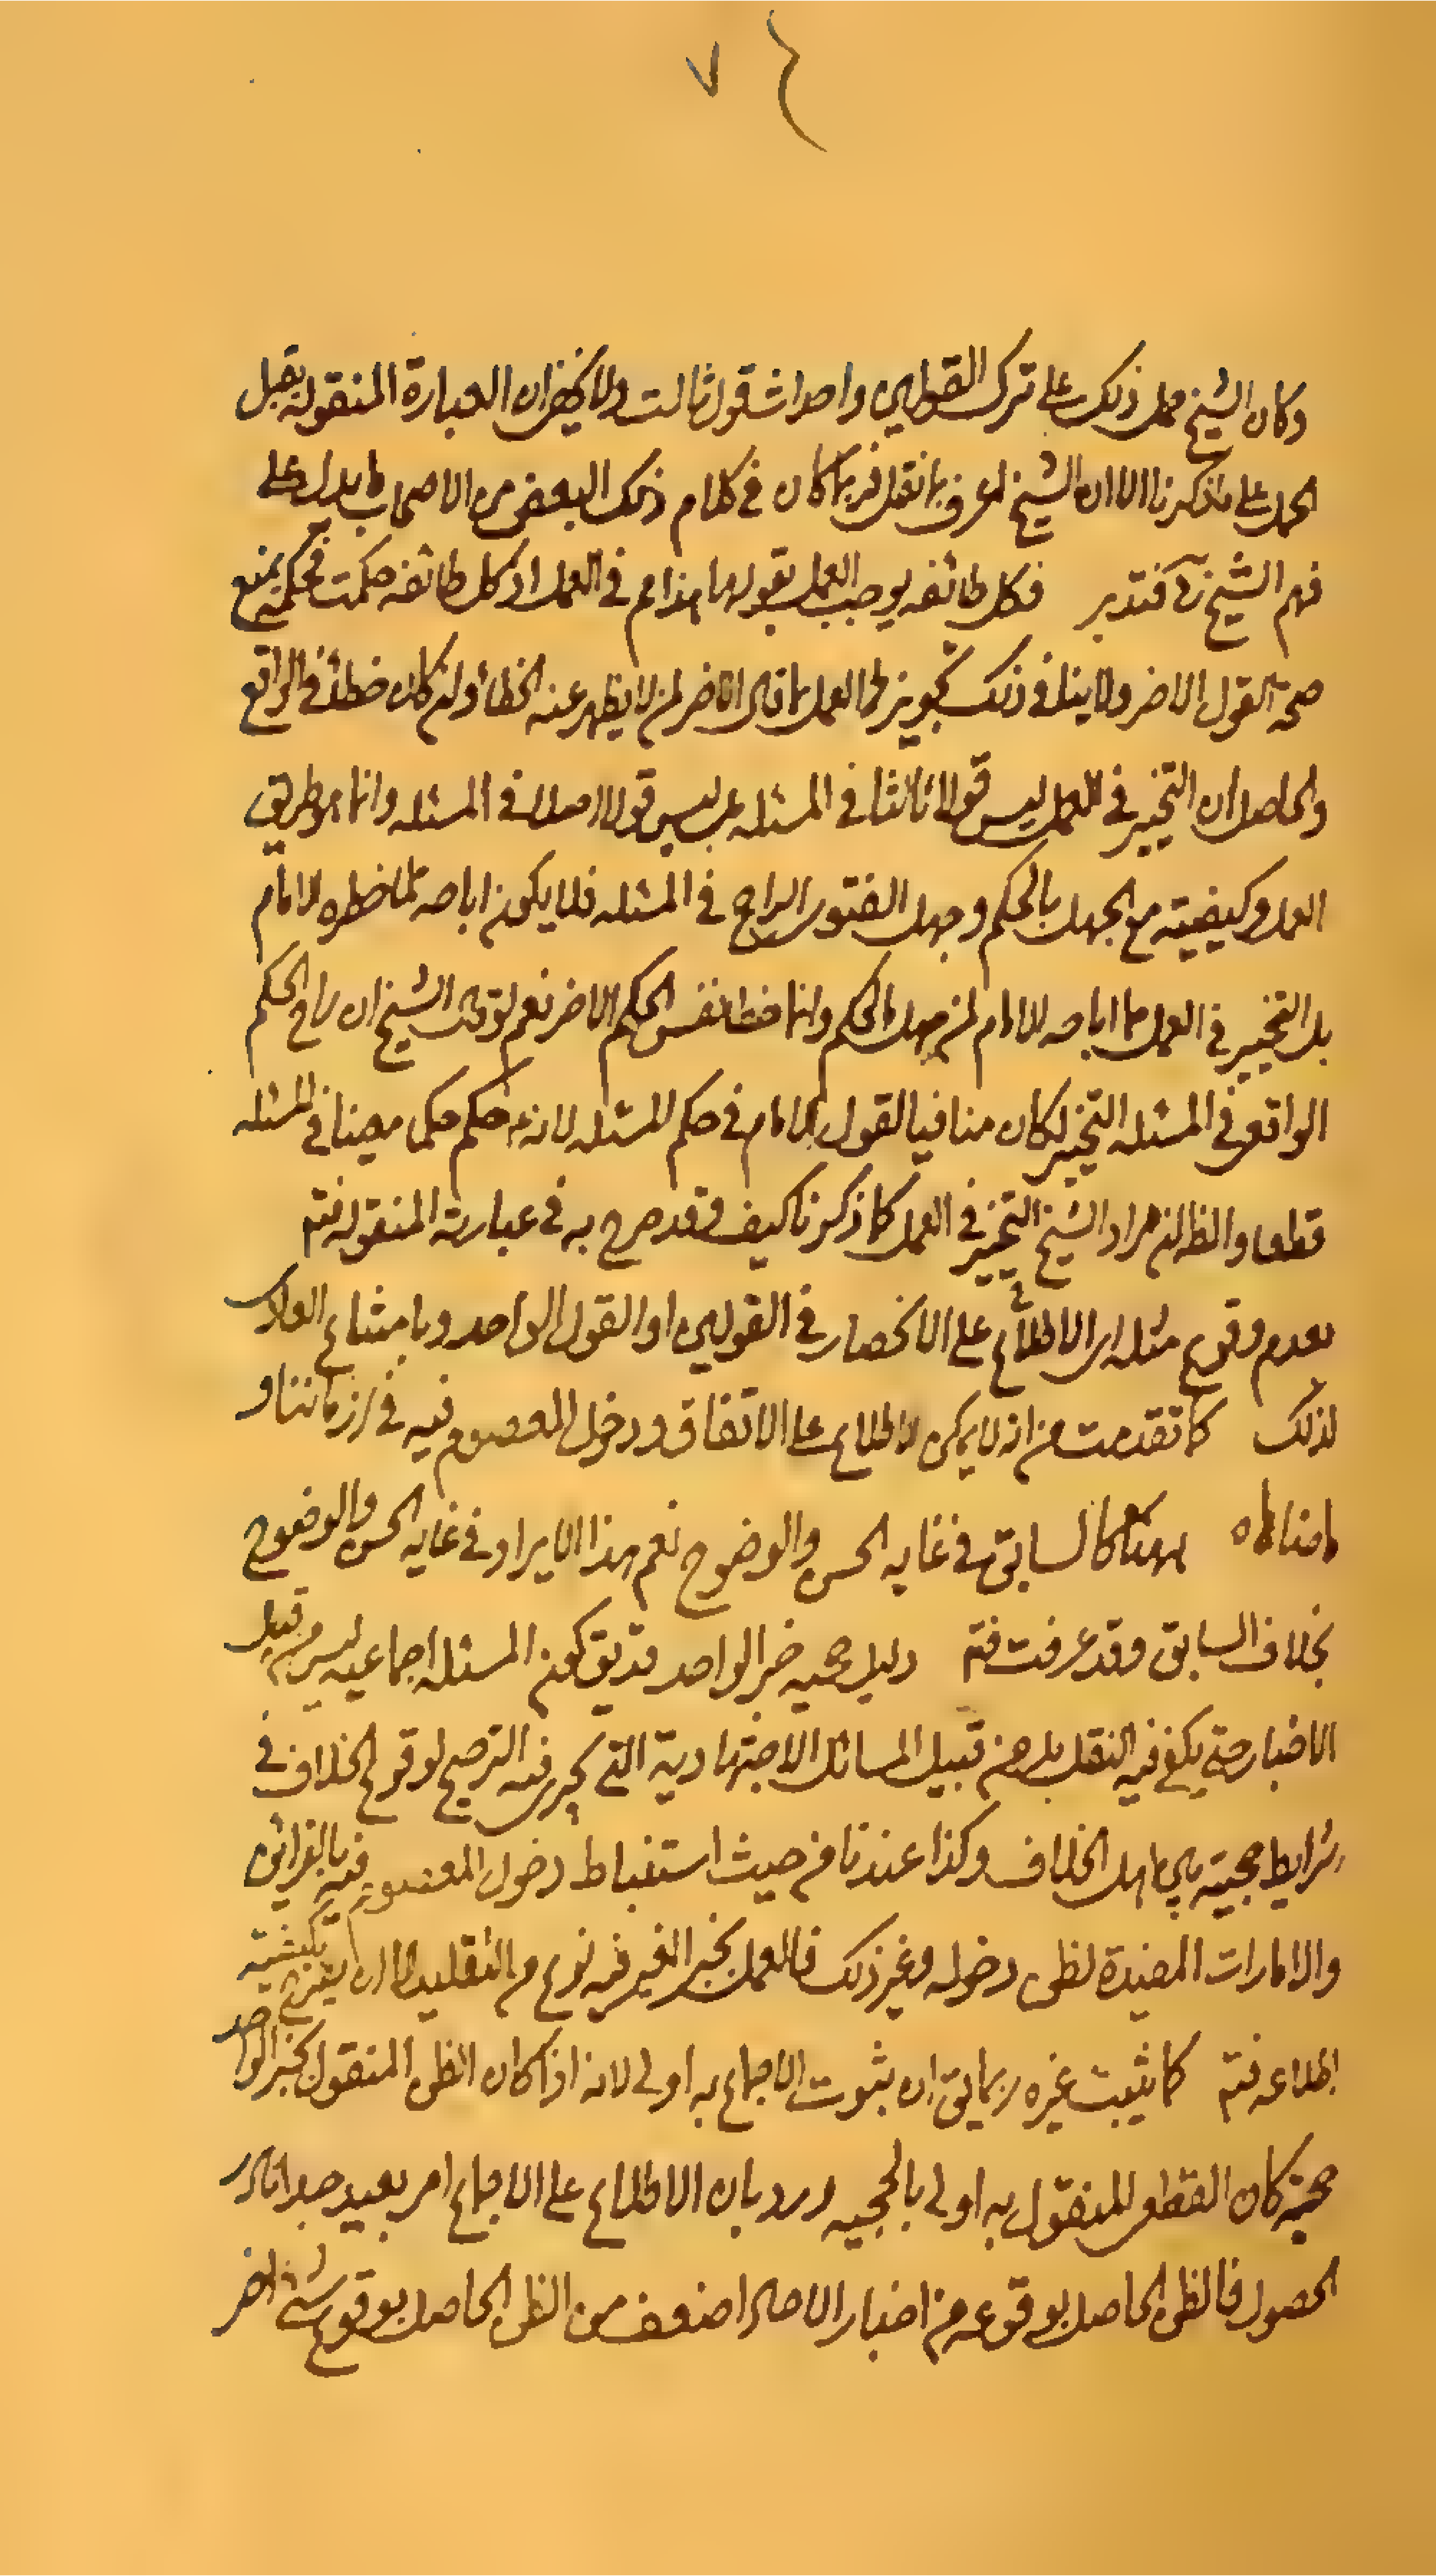 ٧
وكان الشيخ حمل ذلك على ترك القولين واحداث قول ثالث ولا يخفى ان العبارة المنقولة يقبل
الحمل على ما ذكرنا الا ان الشيخ اعرف بما نقل فربما كان في كلام ذلك البعض من الاصحاب ما يدل على
فهم الشيخ ره فتدبر فكل طائفه يوجب العمل بقولها هذا م في العمل اذ كل طائفه حكمت بحكم يمنع
صحة القول الاخر ولا ينافي ذلك تجويز العمل بما قال الاخر لمن لا يظهر عنه الخطأ وان كان خطأ في الواقع
والحاصل ان التخيير في العمل ليس قولا ثالثا في المسئله بل ليس قولا اصلا في المسئله وانما هو طريق
العمل وكيفيته مع الجهل بالحكم وجهل الفتوى الراجح في المسئله فلا يكون اباحه لما حظره الامام
بل التخيير في العمل مما اباحه الامام لمن جهل الحكم وانما خطا نفس الحكم الاخر نعم لو قال الشيخ ان الحكم
الواقعي في المسئله التخيير لكان منافيا لقول الامام في حكم المسئله لانه ع حكم حكما معينا في المسئله
قطعا والظ ان مراد الشيخ التخيير في العمل كما ذكرنا كيف وقد صرح به في عبارته المنقوله فتم
بعدم وقوع مثله اى الاطلاع على الانحصار في القولين او القول الواحد وبامتناع العلاى
لذلك كما تقدمت من انه لا يمكن الاطلاع على الاتفاق ودخول المعصوم فيه في ازماننا و
ما ضاهاه ههنا كالسابق في غايه الحسن والوضوح نعم هذا الايراد في غايه الحسن والوضوح
بخلاف السابق وقد عرفت فتم دليل حجيه خبر الواحد قد يق كون المسئله اجماعيه ليس من قبيل
الاخبار حتى يكفي فيه النقل بل من قبيل المسائل الاجتهادية التي يجرى فيه الترجيح لوقوع الخلاف في
شرايط حجيته بين اهل الخلاف وكذا عندنا من حيث استنباط دخول المعصوم فيه بالقرائن
والامارات المفيدة لظن دخوله وغير ذلك فالعمل بخبر الغير فيه نوع من التقليد الا ان يصرح بكيفيته
اطلاعه فتم كما يثبت غيره ربما يق ان ثبوت الاجماع به اولى لانه اذا كان الظن المنقول بخبر الواحد
حجة كان القطعى المنقول به اولى بالحجيه ورد بان الاطلاع على الاجماع امر بعيد جدا نادر
الحصول فالظن الحاصل بوقوعه من اخبار الاحاد اضعف من الظن الحاصل بوقوع شئ اخر